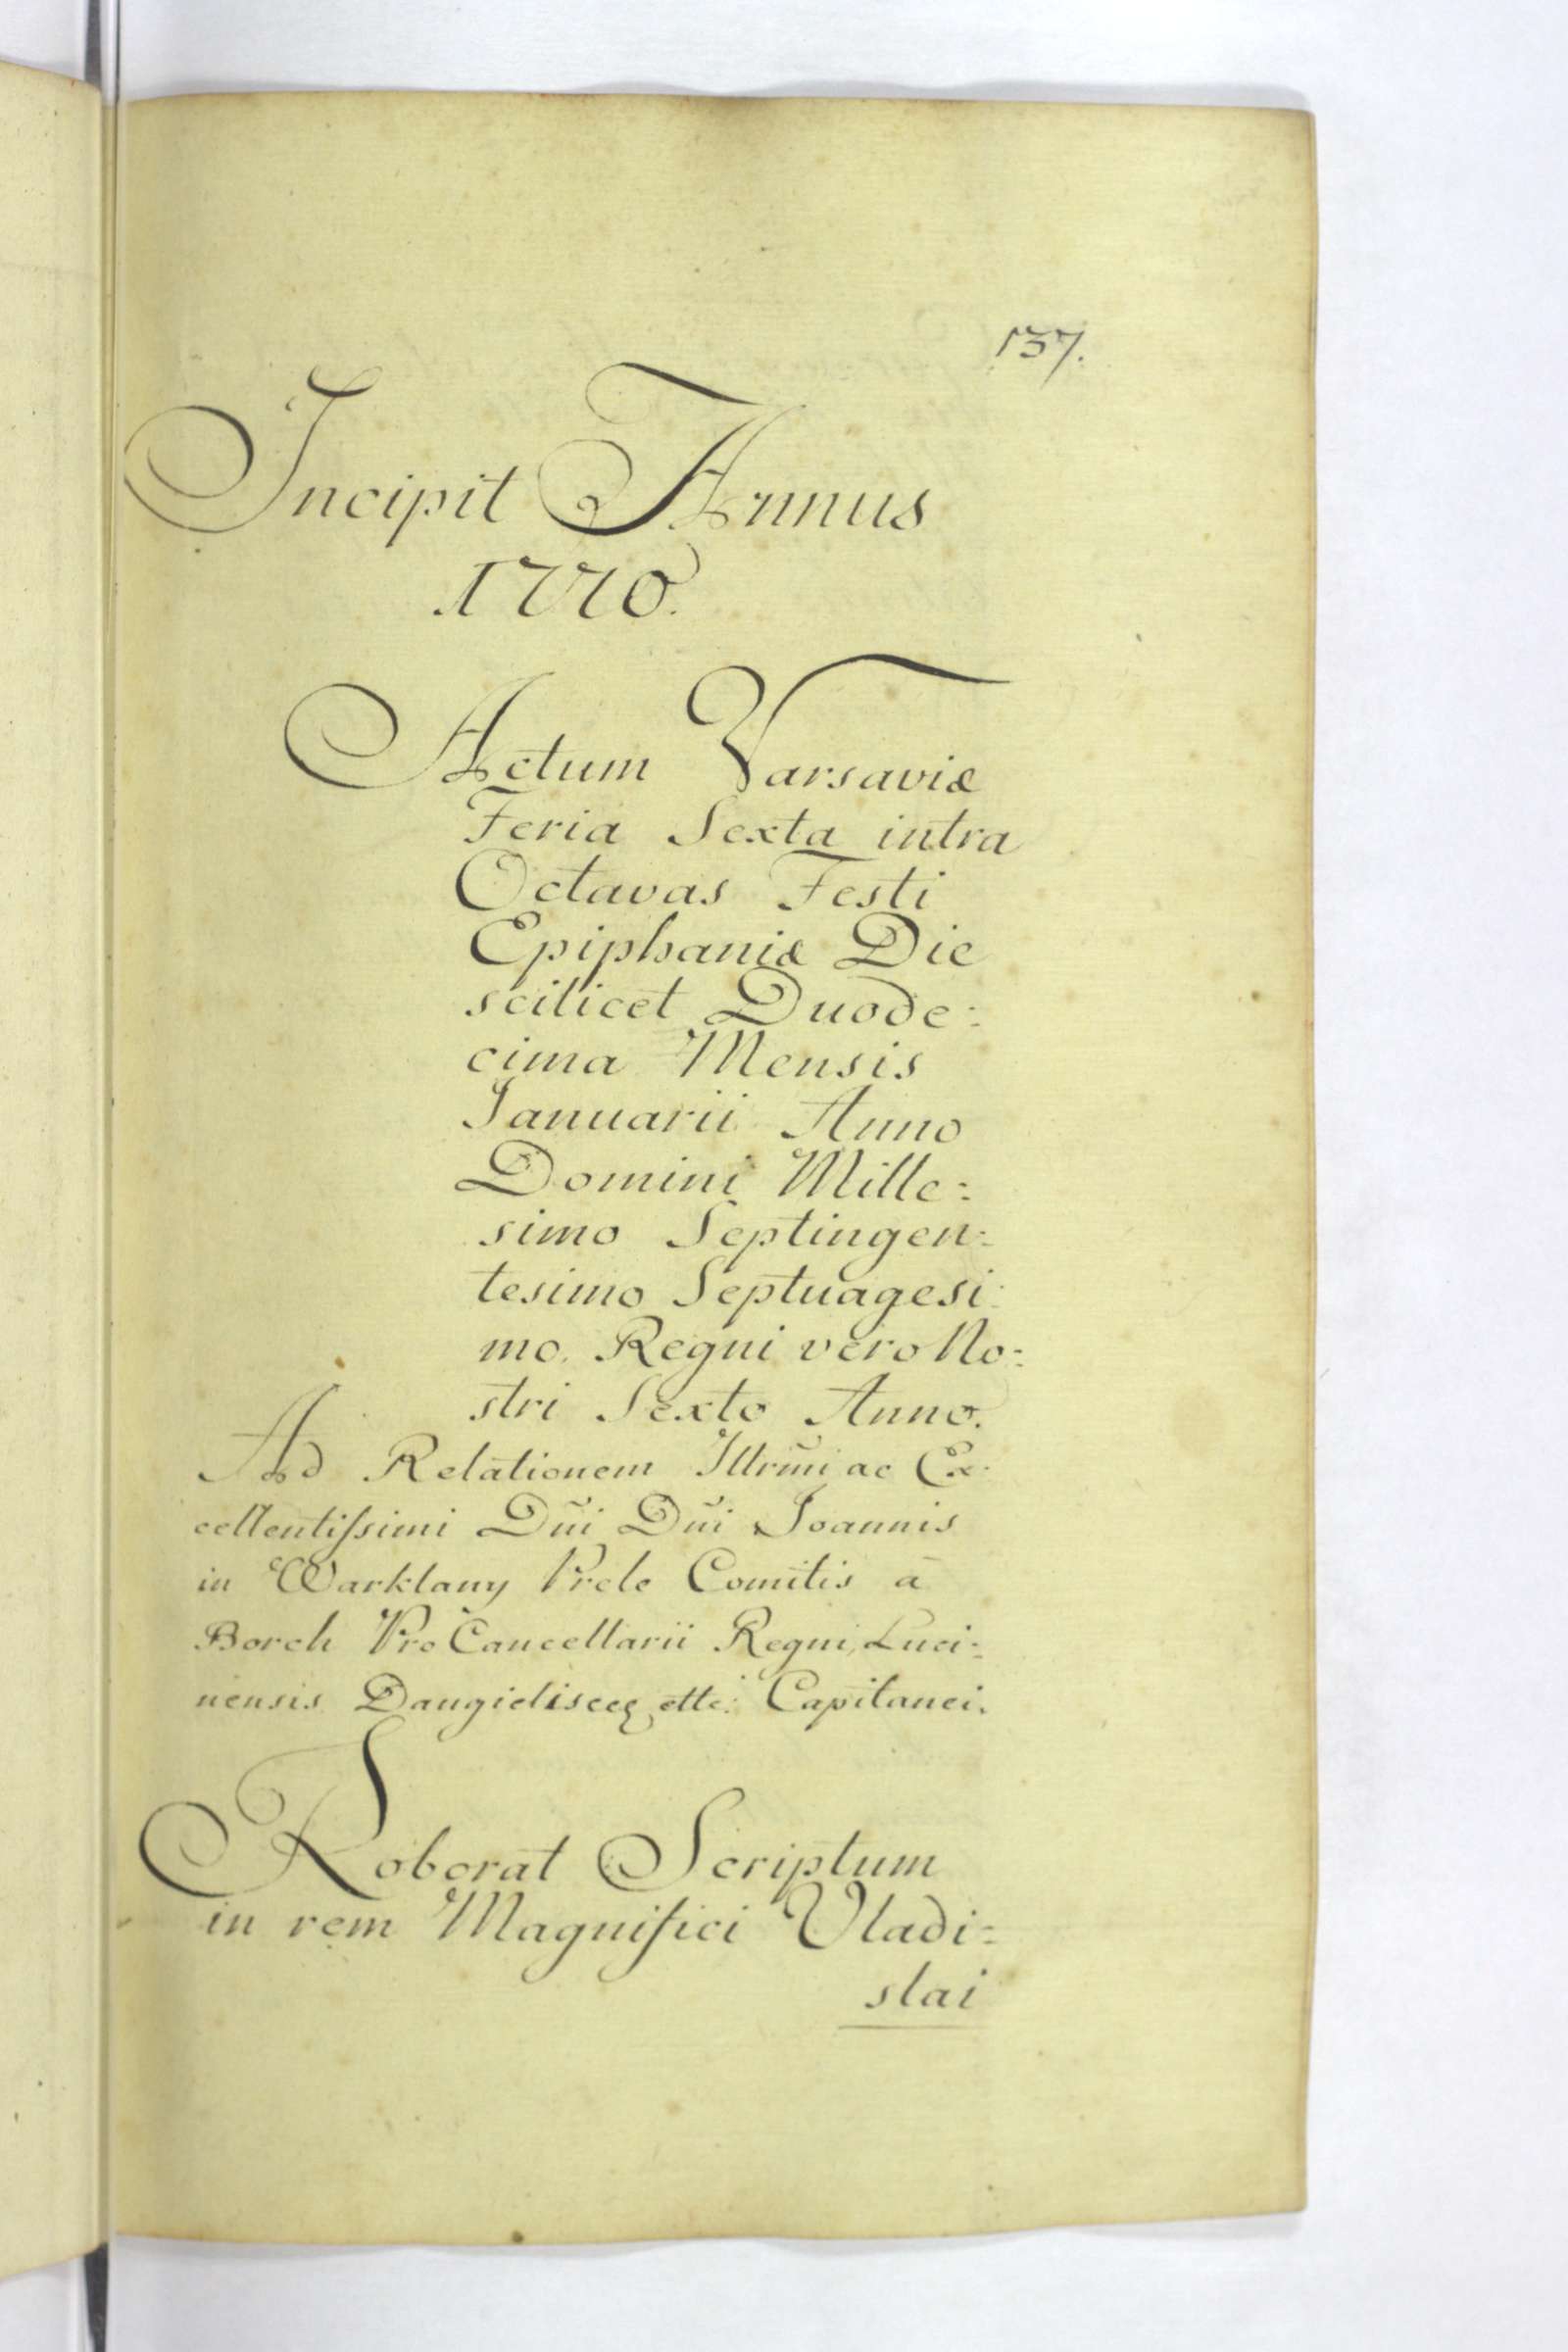 137.
Incipit Annus
1770.
Actum Varsaviæ
Feria Sexta intra
Octavas Festi
Epiphaniæ Die
scilicet Duode:
cima Mensis
Ianuarii Anno
Domini Mille:
simo Septingen:
tesimo Septuagesi:
mo. Regni vero No:
stri Sexto Anno.
Ad Relationem Illrm̃i ac Ex:
cellentiſsimi Dñi Dñi Joannis
in Warklany Prele Comitis à
Borch Pro Cancellarii Regni, Luci:
nensis ettc: Capitanei.
Roborat Scriptum
in rem Magnifici Vladi:
slai